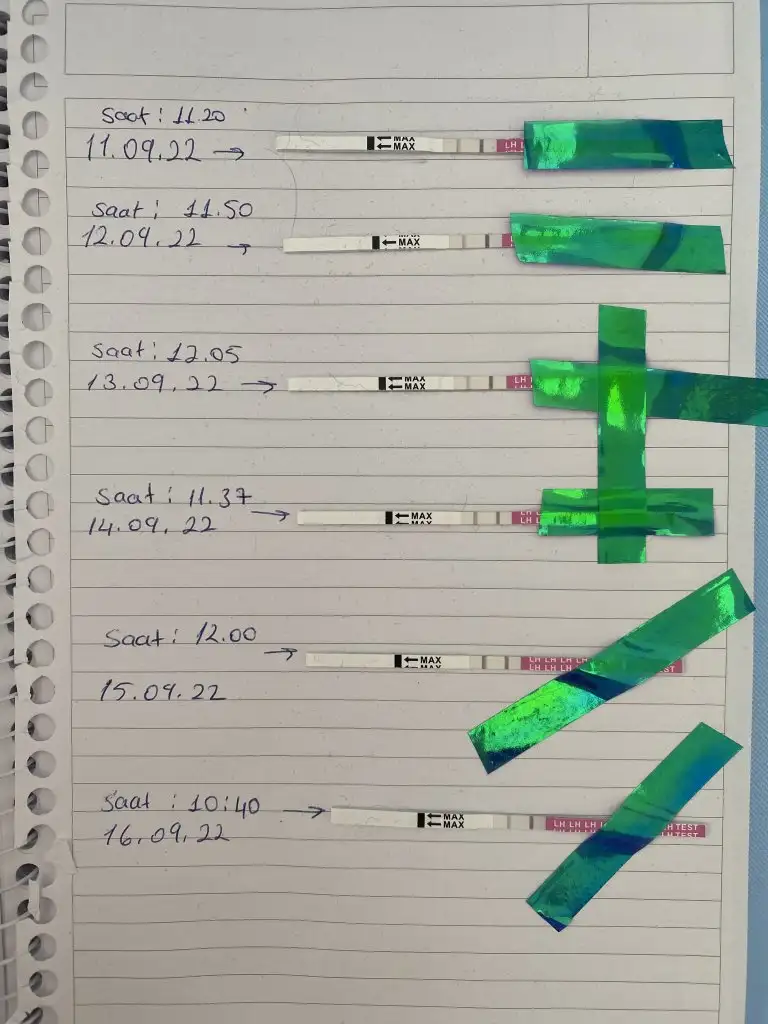 Saat : 11.20
11.09.22 →
MAX
← MAX
LH L
Saat : 11.50
12.09.22 →
← MAX
Saat : 12.05
13.09.22 →
MAX
← MAX
LH
LH
Saat : 11.37 →
14.09.22
← MAX
LH
LH L
Saat : 12.00 →
15.09.22
← MAX
LH LH LH L
TEST
Saat : 10:40 →
16.09.22
← MAX
← MAX
LH LH LH L
LH TEST
LH TEST